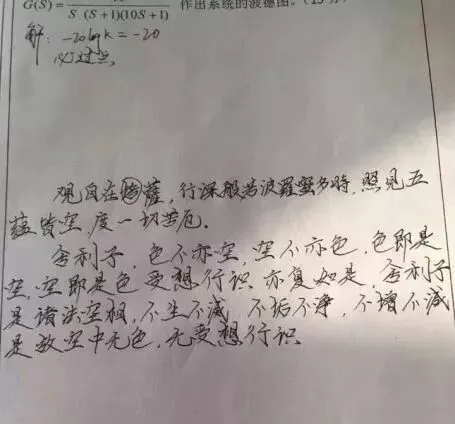 G(S)= S (S+1)(10S+1) 作出系统的波德图。(15分)
解: -20lgk=-20
必过点
观自在菩薩，行深般若波羅蜜多時，照见五
蕴皆空，度一切苦厄。
舍利子，色不亦空，空不亦色，色即是
空，空即是色受想行识 亦复如是，舍利子
是诸法空相，不生不滅，不垢不净，不增不減
是故空中无色，无受想行识